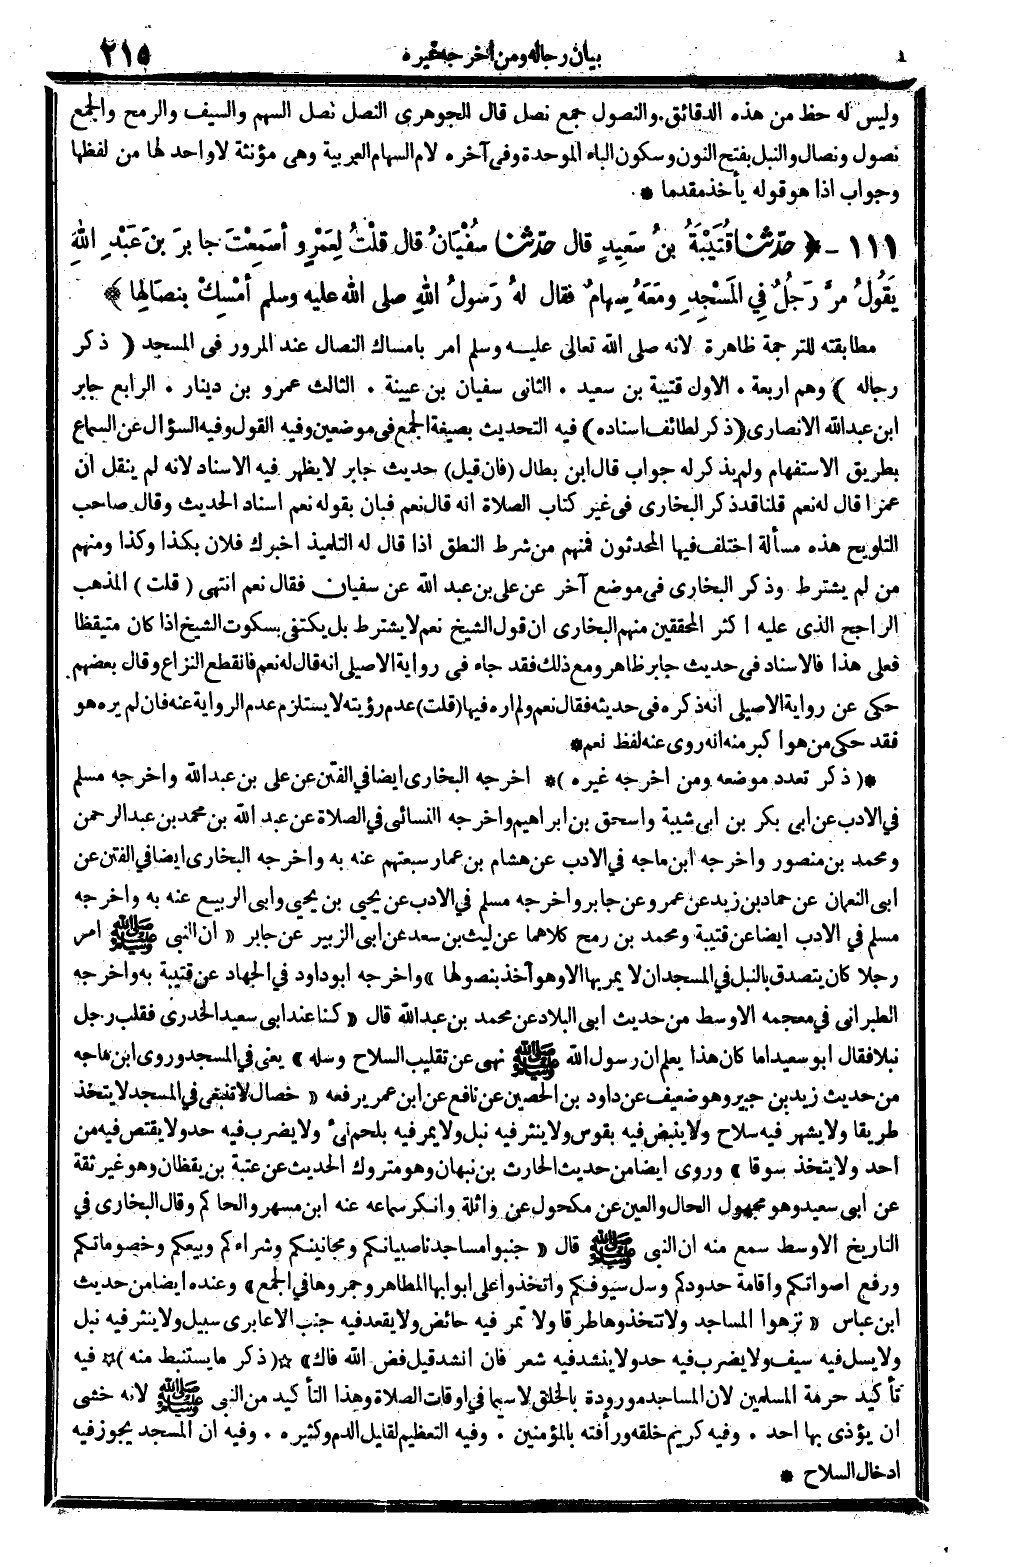 ٢١٥ بيان رجاله ومن أخرجه غيره ١
وليس له حظ من هذه الدقائق. والنصول جمع نصل قال الجوهرى النصل نصل السهم والسيف والرمح والجمع
نصول ونصال والنبل بفتح النون وسكون الباء الموحدة وفى آخره لام السهام العربية وهى مؤنثة لا واحد لها من لفظها
وجواب اذا هو قوله يأخذ مقدما *
١١١ - ﴿ حدّثنا قُتَيْبَةُ بنُ سَعِيدٍ قال حدّثنا سفْيَانُ قال قلْتُ لِعَمْرٍو أسَمِعْتَ جابرَ بنَ عَبْدِ اللهِ
يَقُولُ مرَّ رَجُلٌ فِي المَسْجِدِ ومَعَهُ سِهامٌ فقال لهُ رَسولُ اللهِ صلى الله عليه وسلم أمْسِكْ بنصَالِها ﴾
مطابقته للترجمة ظاهرة لانه صلى الله تعالى عليه وسلم امر بامساك النصال عند المرور فى المسجد ( ذكر
رجاله ) وهم اربعة . الاول قتيبة بن سعيد . الثانى سفيان بن عيينة . الثالث عمرو بن دينار . الرابع جابر
ابن عبدالله الانصارى (ذكر لطائف اسناده) فيه التحديث بصيغة الجمع فى موضعين وفيه القول وفيه السؤال عن السماع
بطريق الاستفهام ولم يذكر له جواب قال ابن بطال (فان قيل) حديث جابر لا يظهر فيه الاسناد لانه لم ينقل ان
عمرا قال له نعم قلنا قد ذكر البخارى فى غير كتاب الصلاة انه قال نعم فبان بقوله نعم اسناد الحديث وقال صاحب
التلويح هذه مسألة اختلف فيها المحدثون فمنهم من شرط النطق اذا قال له التلميذ اخبرك فلان بكذا وكذا ومنهم
من لم يشترط وذكر البخارى فى موضع آخر عن على بن عبد الله عن سفيان فقال نعم انتهى ( قلت ) المذهب
الراجح الذى عليه اكثر المحققين منهم البخارى ان قول الشيخ نعم لا يشترط بل يكتفى بسكوت الشيخ اذا كان متيقظا
فعلى هذا فالاسناد فى حديث جابر ظاهر ومع ذلك فقد جاء فى رواية الاصيلى انه قال له نعم فانقطع النزاع وقال بعضهم
حكى عن رواية الاصيلى انه ذكره فى حديثه فقال نعم ولم اره فيها (قلت) عدم رؤيته لا يستلزم عدم الرواية عنه فان لم يره هو
فقد حكى من هو اكبر منه انه روى عنه لفظ نعم *
*( ذكر تعدد موضعه ومن اخرجه غيره )* اخرجه البخارى ايضا فى الفتن عن على بن عبدالله واخرجه مسلم
فى الادب عن ابى بكر بن ابى شيبة واسحق بن ابراهيم واخرجه النسائى فى الصلاة عن عبد الله بن محمد بن عبد الرحمن
ومحمد بن منصور واخرجه ابن ماجه فى الادب عن هشام بن عمار سبعتهم عنه به واخرجه البخارى ايضا فى الفتن عن
ابى النعمان عن حماد بن زيد عن عمرو عن جابر واخرجه مسلم فى الادب عن يحيى بن يحيى وابى الربيع عنه به واخرجه
مسلم فى الادب ايضا عن قتيبة ومحمد بن رمح كلاهما عن ليث بن سعد عن ابى الزبير عن جابر « ان النبى ﷺ امر
رجلا كان يتصدق بالنبل فى المسجد ان لا يمر بها الا وهو آخذ بنصولها » واخرجه ابو داود فى الجهاد عن قتيبة به واخرجه
الطبرانى فى معجمه الاوسط من حديث ابى البلاد عن محمد بن عبدالله قال « كنا عند ابى سعيد الخدرى فقلب رجل
نبلا فقال ابو سعيد اما كان هذا يعلم ان رسول الله ﷺ نهى عن تقليب السلاح وسله » يعنى فى المسجد وروى ابن ماجه
من حديث زيد بن جبير وهو ضعيف عن داود بن الحصين عن نافع عن ابن عمر يرفعه « خصال لا تنبغى فى المسجد لا يتخذ
طريقا ولا يشهر فيه سلاح ولا ينبض فيه بقوس ولا ينثر فيه نبل ولا يمر فيه بلحم نىء ولا يضرب فيه حد ولا يقتص فيه من
احد ولا يتخذ سوقا » وروى ايضا من حديث الحارث بن نبهان وهو متروك الحديث عن عتبة بن يقظان وهو غير ثقة
عن ابى سعيد وهو مجهول الحال والعين عن مكحول عن واثلة وانكر سماعه عنه ابن مسهر والحاكم وقال البخارى فى
التاريخ الاوسط سمع منه ان النبى ﷺ قال « جنبوا مساجدنا صبيانكم ومجانينكم وشراءكم وبيعكم وخصوماتكم
ورفع اصواتكم واقامة حدودكم وسل سيوفكم واتخذوا على ابوابها المطاهر وجمروها فى الجمع » وعنده ايضا من حديث
ابن عباس « نزهوا المساجد ولا تتخذوها طرقا ولا تمر فيه حائض ولا يقعد فيه جنب الا عابرى سبيل ولا ينثر فيه نبل
ولا يسل فيه سيف ولا يضرب فيه حد ولا ينشد فيه شعر فان انشد قيل فض الله فاك » ☆( ذكر ما يستنبط منه )☆ فيه
تأكيد حرمة المسلمين لان المساجد مورودة بالخلق لا سيما فى اوقات الصلاة وهذا التأكيد من النبى ﷺ لانه خشى
ان يؤذى بها احد . وفيه كريم خلقه ورأفته بالمؤمنين . وفيه التعظيم لقليل الدم وكثيره . وفيه ان المسجد يجوز فيه
ادخال السلاح *